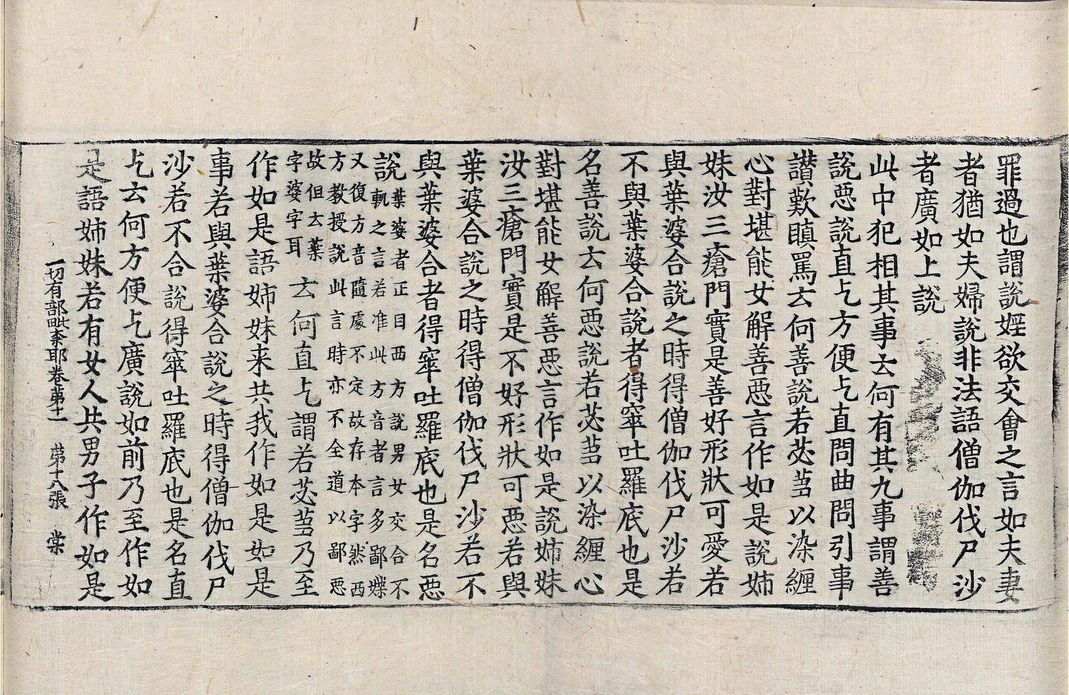 罪過也謂說婬欲交會之言如夫妻
者猶如夫婦說非法語僧伽伐尸沙
者廣如上說
此中犯相其事云何有其九事謂善
說惡說直乞方便乞直問曲問引事
讃歎瞋罵云何善說若苾芻以染纏
心對堪能女解善惡言作如是說姊
妹汝三瘡門實是善好形狀可愛若
與葉婆合說之時得僧伽伐尸沙若
不與葉婆合說者得窣吐羅底也是
名善說云何惡說若苾芻以染纏心
對堪能女解善惡言作如是說姊妹
汝三瘡門實是不好形狀可惡若與
葉婆合說之時得僧伽伐尸沙若不
與葉婆合者得窣吐羅底也是名惡
說葉婆者正目西方說男女交合不
軌之言若准此方音者言多鄙媟
又復方音隨處不定故存本字然西
方教授說此言時亦不全道以鄙惡
故但云葉
字婆字耳云何直乞謂若苾芻乃至
作如是語姊妹来共我作如是如是
事若與葉婆合說之時得僧伽伐尸
沙若不合說得窣吐羅底也是名直
乞云何方便乞廣說如前乃至作如
是語姊妹若有女人共男子作如是
一切有部毗柰耶卷第十一 第十八張 棠